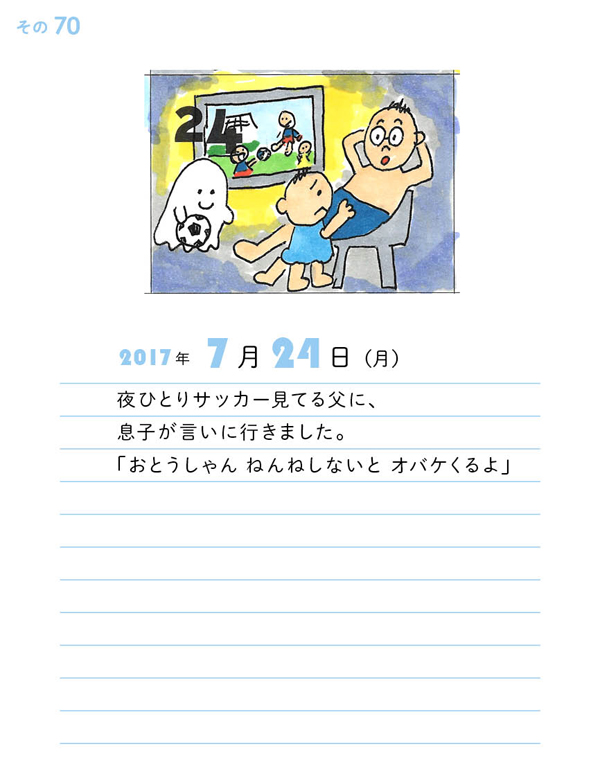 その 70
24
2017年 7月24日（月）
夜ひとりサッカー見てる父に、
息子が言いに行きました。
「おとうしゃん ねんねしないと オバケくるよ」